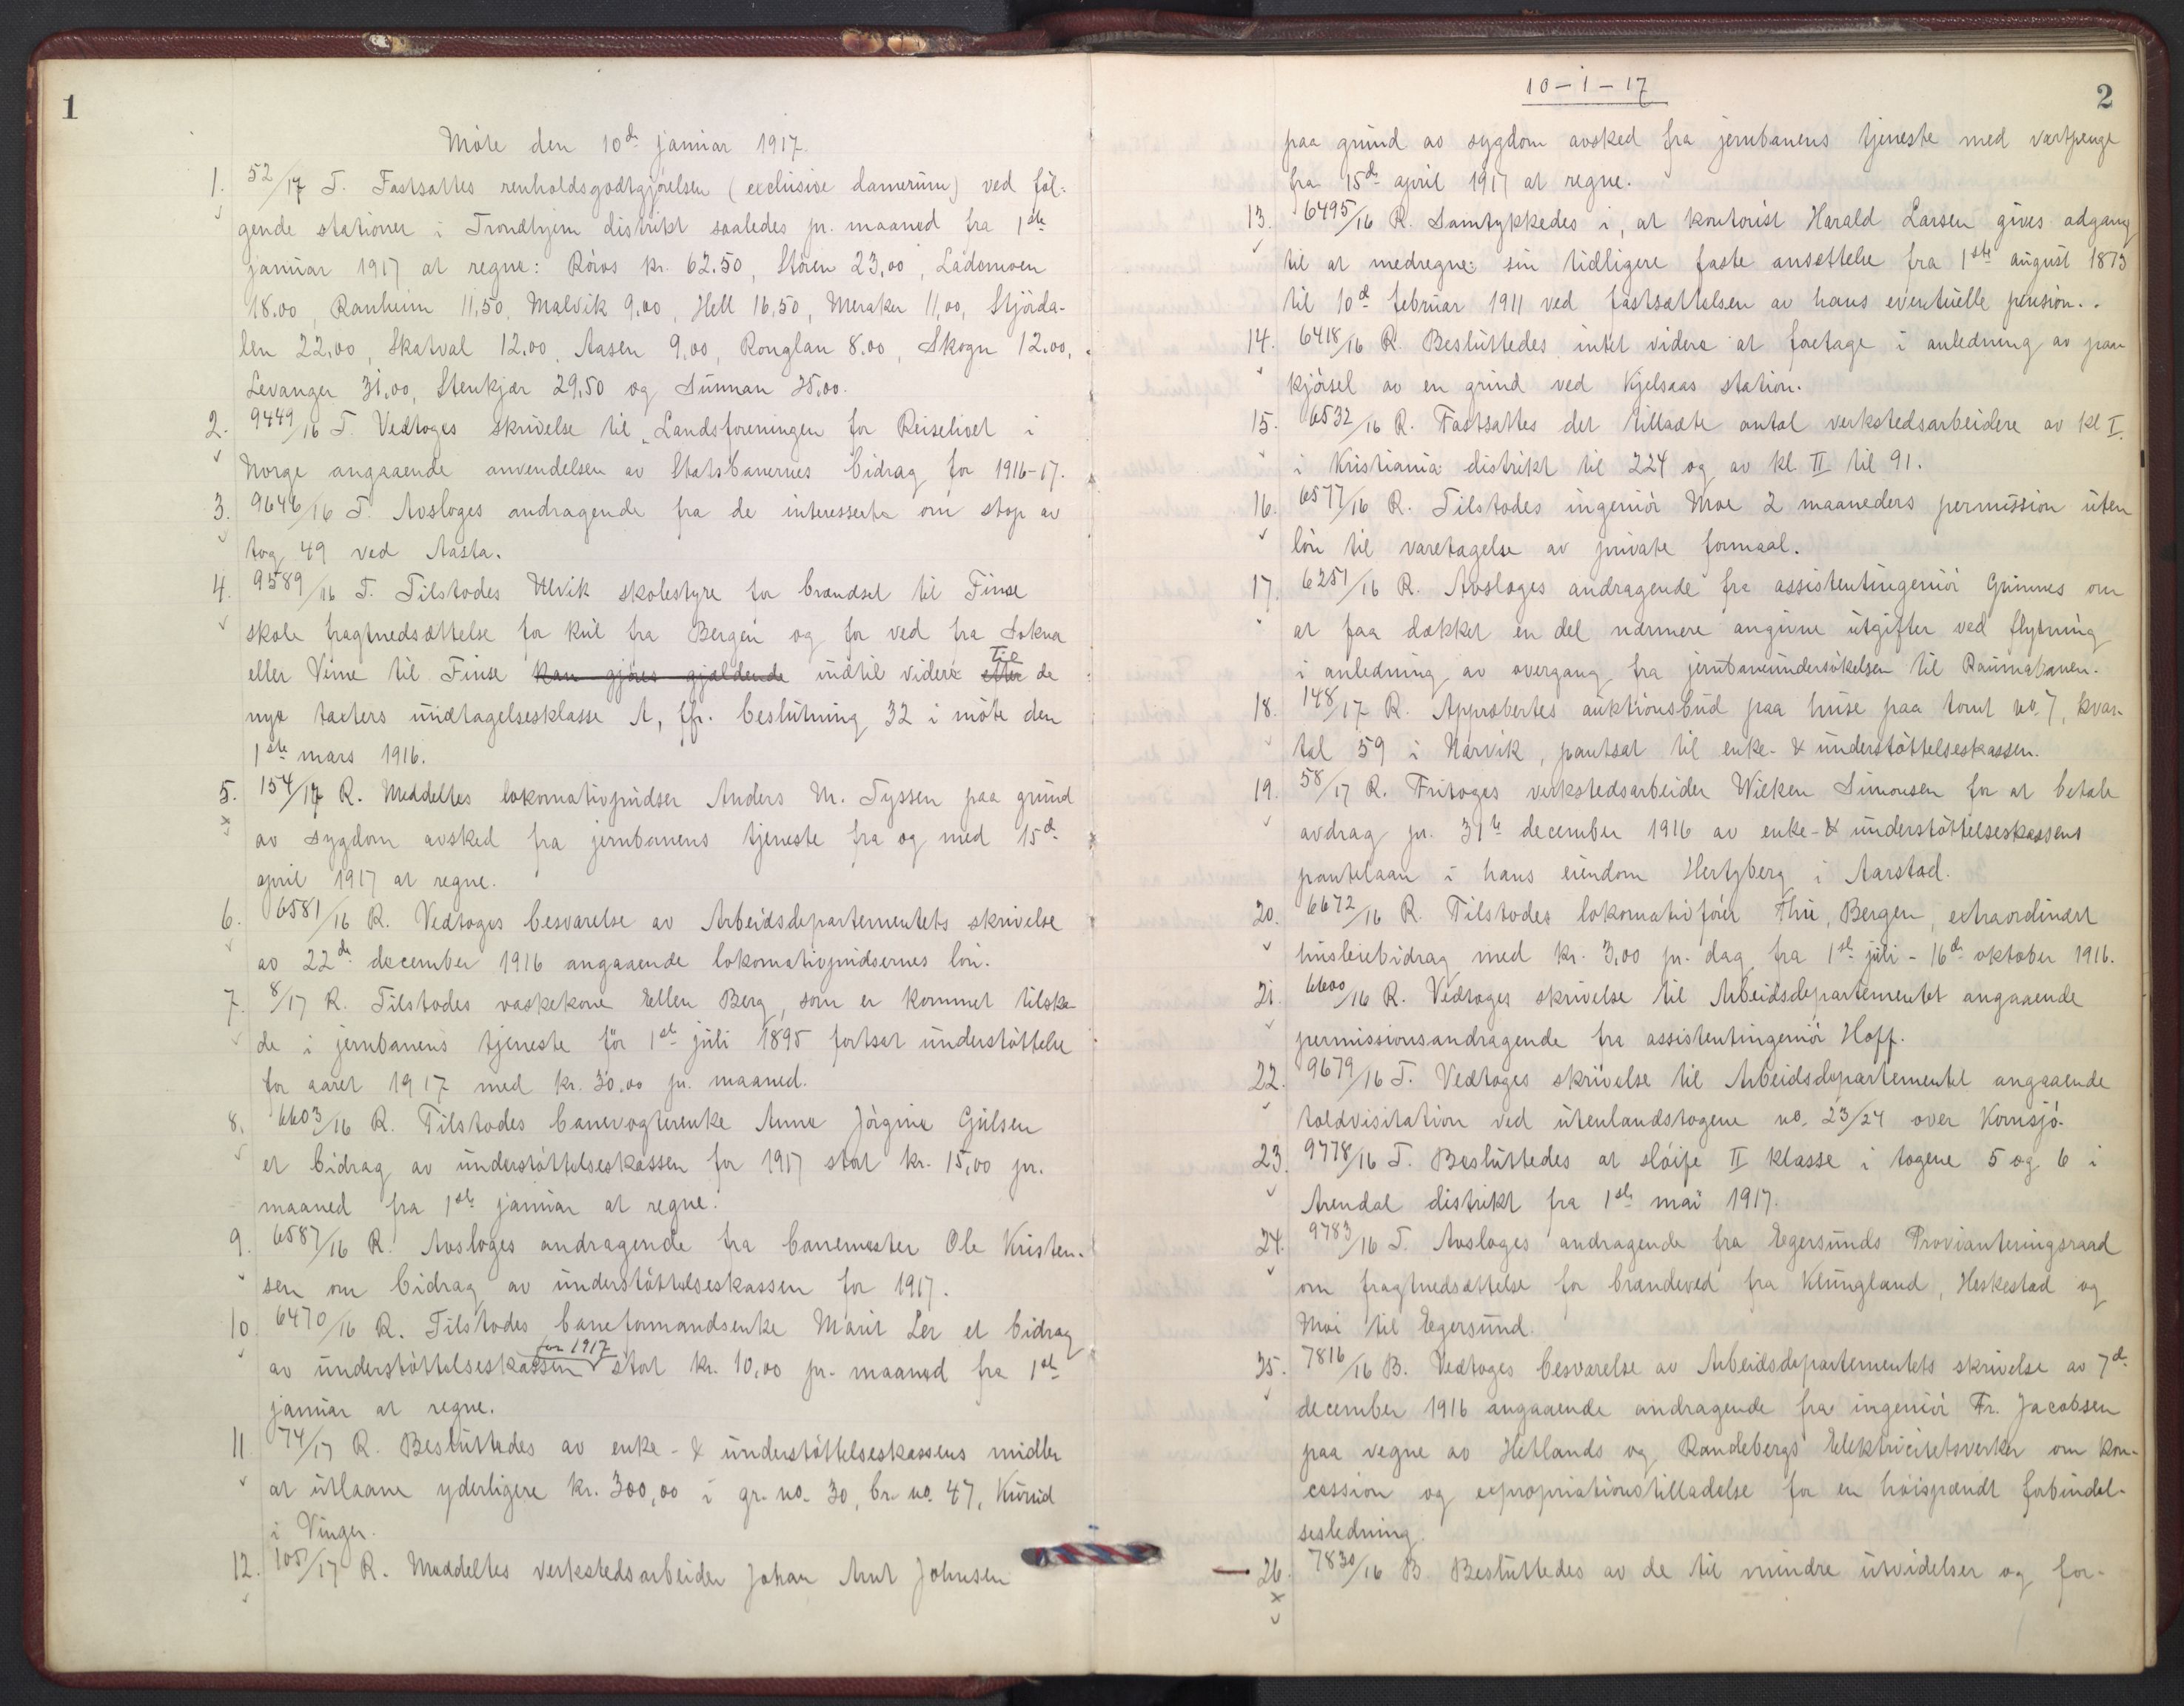 1
Møte den 10de januar 1917.
1. 52/17 T. Fastsattes renholdsgodtgjørelsen (exclusive damerum) ved føl-
gende stationer i Trondhjem distrikt saaledes pr. maaned fra 1ste
januar 1917 at regne: Röros kr. 62.50, Stören 23,00, Ladomoen
18.00, Ranheim 11,50, Malvik 9,00, Hell 16,50, Meraker 11,00, Stjörda-
len 22,00, Skatval 12.00, Aasen 9,00, Ronglan 8.00, Skogn 12.00,
Levanger 31,00, Stenkjær 29,50 og Sunnan 25,00.
2. 9449/16 T. Vedtoges skrivelse til "Landsforeningen for Reiselivet i
Norge angaaende anvendelsen av Statsbanernes bidrag for 1916-17.
3. 9646/16 T. Avsloges andragende fra de interesserte om stop av
tog 49 ved Aasta.
4. 9589/16 T. Tilstodes Ulvik skolestyre for brændsel til Finse
skole fragtnedsættelse for kul fra Bergen og for ved fra Sokna
eller Vime til Finse kan gjöres gjældende indtil videre efter til de
nye taxters undtagelsesklasse A, jfr. beslutning 32 i möte den
1ste mars 1916.
5. 154/17 R. Meddeltes lokomotivpudser Anders M. Tyssen paa grund
av sygdom avsked fra jernbanens tjeneste fra og med 15de
april 1917 at regne.
6. 6581/16 R. Vedtoges besvarelse av Arbeidsdepartementets skrivelse
av 22de december 1916 angaaende lokomotivpudsernes lön.
7. 8/17 R. Tilstodes vaskekone Ellen Berg, som er kommet tilska-
de i jernbanens tjeneste för 1ste juli 1895 fortsat understöttelse
for aaret 1917 med kr. 30,00 pr. maaned.
8. 6603/16 R. Tilstodes banevogterenke Anne Jörgine Gulsen
et bidrag av understöttelseskassen for 1917 stort kr. 15,00 pr.
maaned fra 1ste januar at regne.
9. 6587/16 R. Avsloges andragende fra banemester Ole Kristen-
sen om bidrag av understöttelseskassen for 1917.
10. 6470/16 R. Tilstodes baneformandsenke Marit Ler et bidrag
av understöttelseskassen for 1917 stort kr. 10,00 pr. maaned fra 1ste
januar at regne.
11 74/17 R. Besluttedes av enke- & understöttelseskassens midler
at utlaane yderligere kr. 300,00 i gr. no. 30, br. no. 47,
i Vinger.
12. 105/17 R. Meddeltes verkstedsarbeider Johan Arnt Johnsen
2
10-1-17
paa grund av sygdom avsked fra jernbanens tjeneste med vartpenge
fra 15de april 1917 at regne.
13. 6495/16 R. Samtykkedes i, at kontorist Harald Larsen gives adgang
til at medregne sin tidligere faste ansættelse fra 1ste august 1873
til 10de februar 1911 ved fastsættelsen av hans eventuelle pension.
14. 6418/16 R. Besluttedes intet videre at foretage i anledning av paa-
kjörsel av en grind ved Kjelsaas station.
15. 6532/16 R. Fastsattes det tilladte antal verkstedsarbeidere av kl I.
i Kristiania distrikt til 224 og av kl. II til 91.
16. 6577/16 R. Tilstodes ingeniör Moe 2 maaneders permission uten
lön til varetagelse av private formaal.
17. 6251/16 R. Avsloges andragende fra assistentingeniör Grimnes om
at faa dækket en del nærmere angivne utgifter ved flytning
i anledning av overgang fra jernbaneundersökelsen til Raumabanen.
18. 148/17 R. Approbertes auktionsbud paa huse paa tomt no. 7, kvar-
tal 59 i Narvik, pantsat til enke- & understöttelseskassen.
19. 58/17 R. Fritoges verkstedsarbeider Wieken Simonsen for at betale
avdrag pr. 31te december 1916 av enke- & understöttelseskassens
pantelaan i hans eiendom Hertzberg i Aarstad.
20. 6672/16 R. Tilstodes lokomotivförer Thu, Bergen, extraordinært
husleiebidrag med kr. 3,00 pr. dag fra 1ste juli - 16de oktober 1916.
21. 6600/16 R. Vedtoges skrivelse til Arbeidsdepartementet angaaende
permissionsandragende fra assistentingeniör Hoff.
22. 9679/16 T. Vedtoges skrivelse til Arbeidsdepartementet angaaende
toldvisitation ved utenlandstogene no. 23/24 over Kornsjö.
23. 9778/16 T. Besluttedes at slöife II klasse i togene 5 og 6 i
Arendal distrikt fra 1ste mai 1917.
24. 9783/16 T. Avsloges andragende fra Egersunds Provianteringsraad
om fragtnedsættelse for brændeved fra Klungland, Heskestad og
Moi til Egersund.
25. 7816/16 B. Vedtoges besvarelse av Arbeidsdepartementets skrivelse av 7de
december 1916 angaaende andragende fra ingeniör Fr. Jacobsen
paa vegne av Hetlands og Randebergs Elektricitetsverker om kon-
cession og expropriationstilladelse for en höispændt forbindel-
sesledning.
26. 7830/16 B. Besluttedes av de til mindre utvidelser og for-